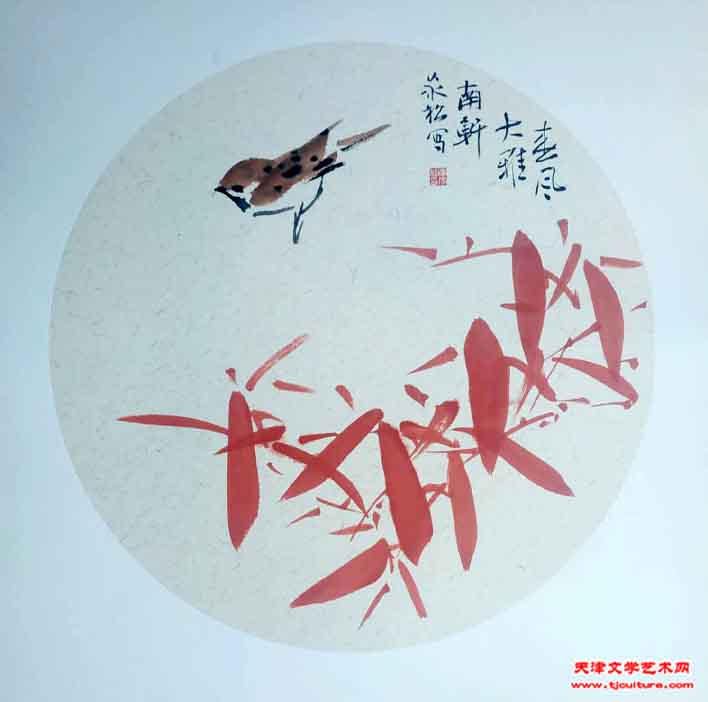 春风
大雅
南軒
永松写
天津文学艺术网
www.tjculture.com